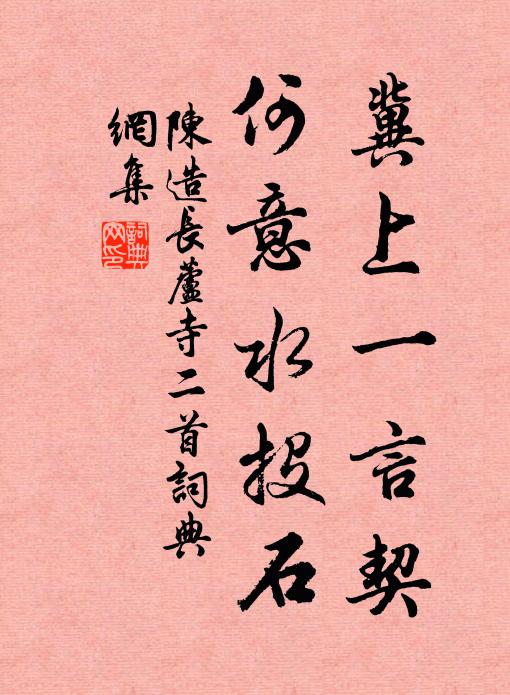 冀上一言契
何意水投石
陳造長蘆寺二首詞典
網集
詞典網印